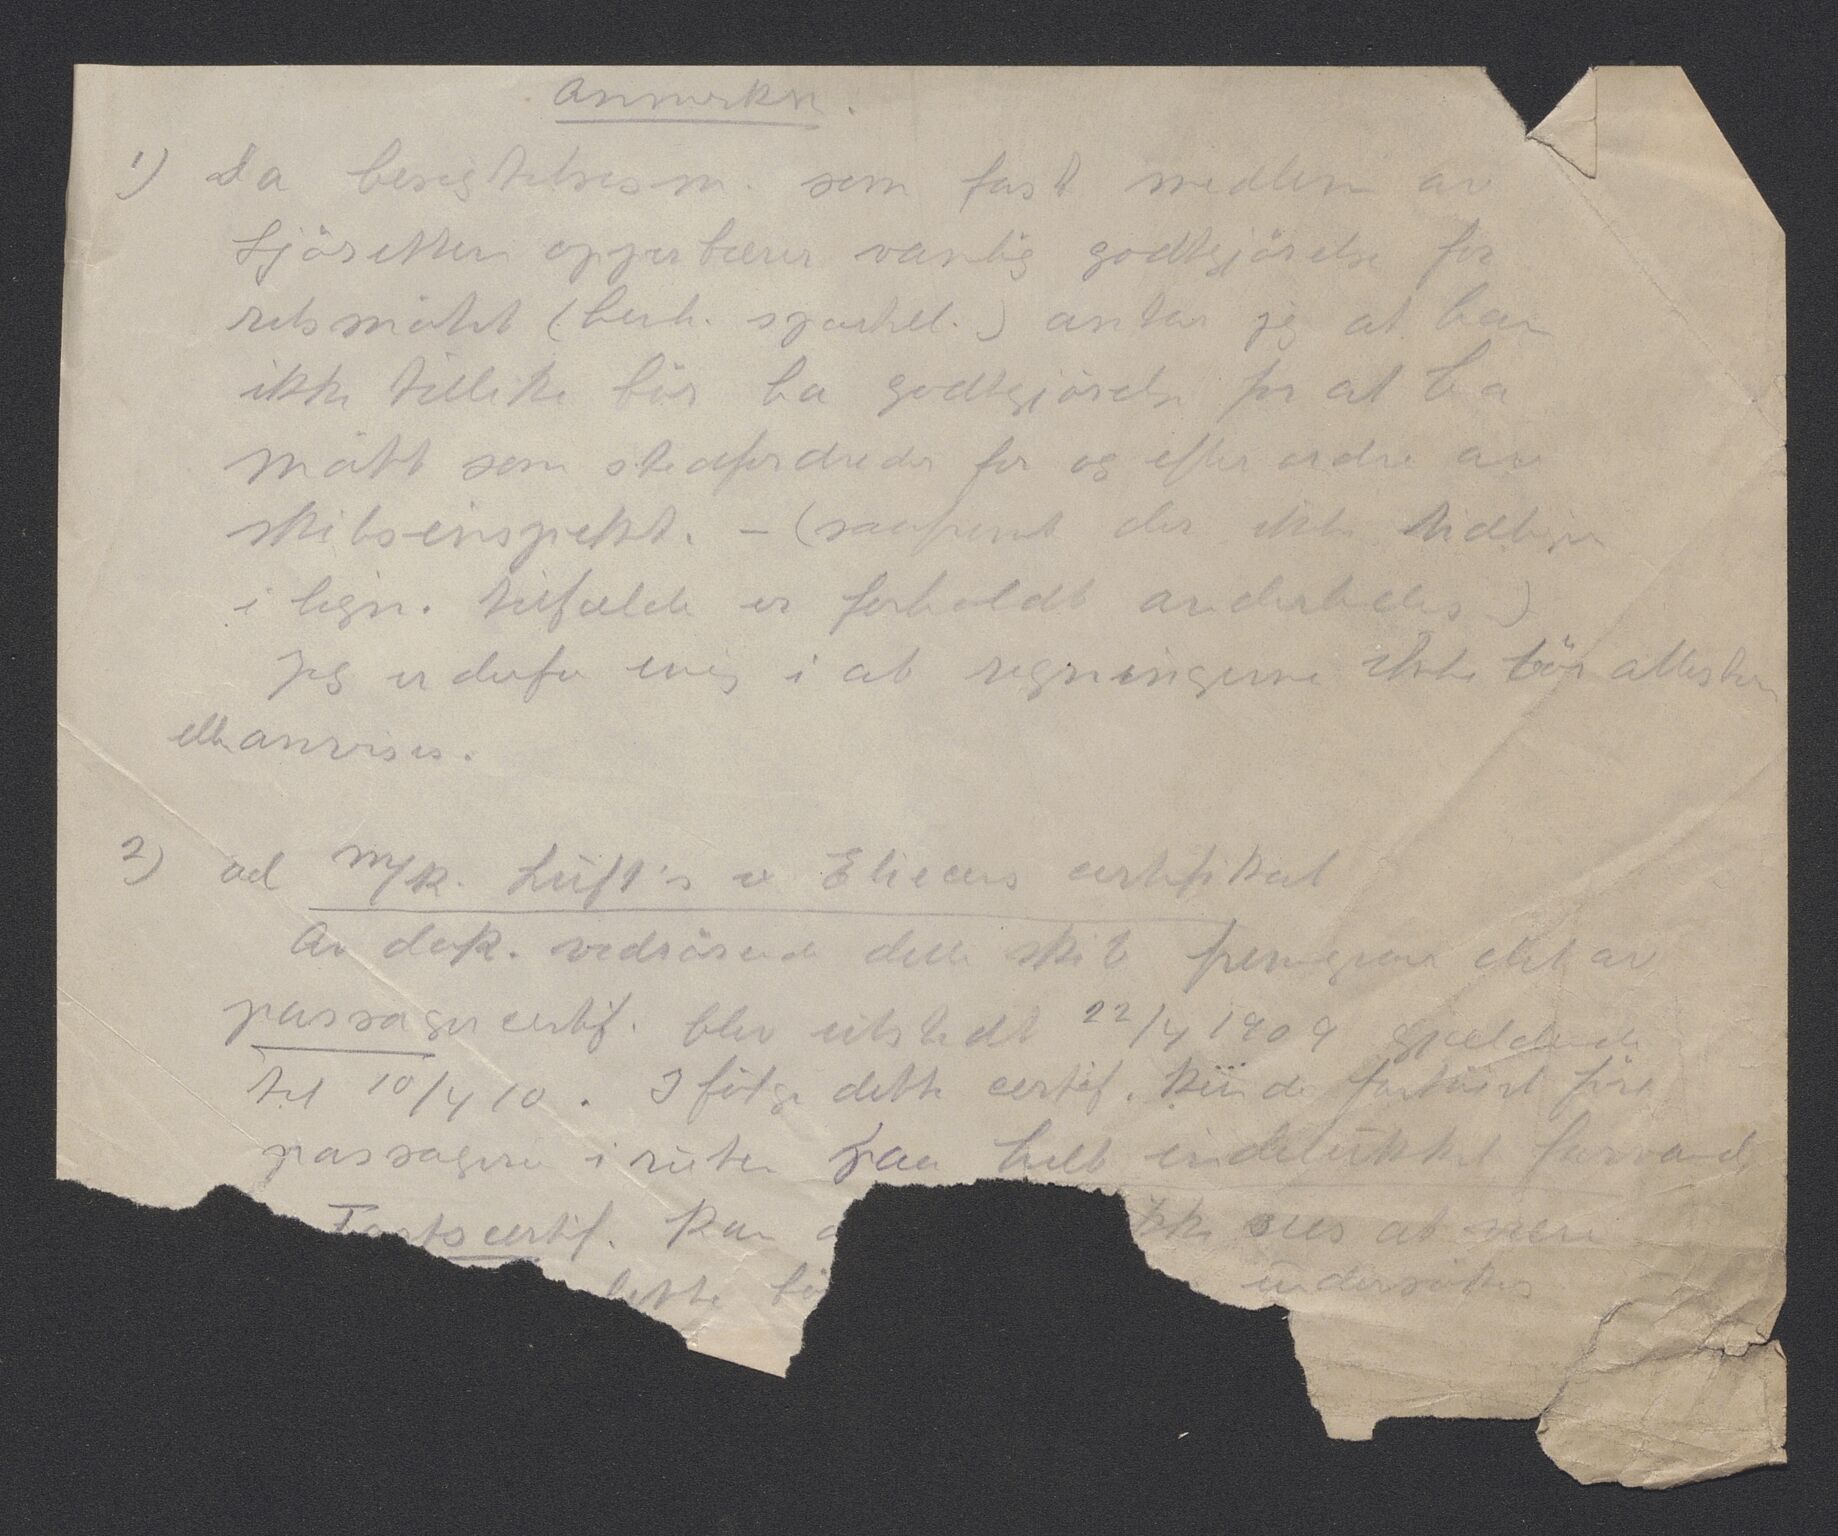 Anmerkn.
1) Da besigtelsesm. som fast medlem av
Sjöretten oppebærer vanlig godtgjörelse for
retsmötet (besk. spesiel.) antar jeg at han
ikke tillike bör ha godtgjörelse for at ha
mött som stedfortreder for og efter ordre av
skibsinspekt. – (saafremt der ikke tidligere
i lign. tilfælde er forholdt anderledes)
Jeg er derfor enig i at regningerne ikke bör attesteres
eller anvises.
2) ad m/k. Luft's certifikat
Av dok. vedrörende dette skib fremgaar det at
passagercertif. blev utstedt 22/4 1909 gjældende
til 10/4 10. Ifölge dette certif. kunde fartöiet före
passagerer i ruten paa helt indelukket farvand
Fartscertif. kan ikke sees at være
dette bö undersökes